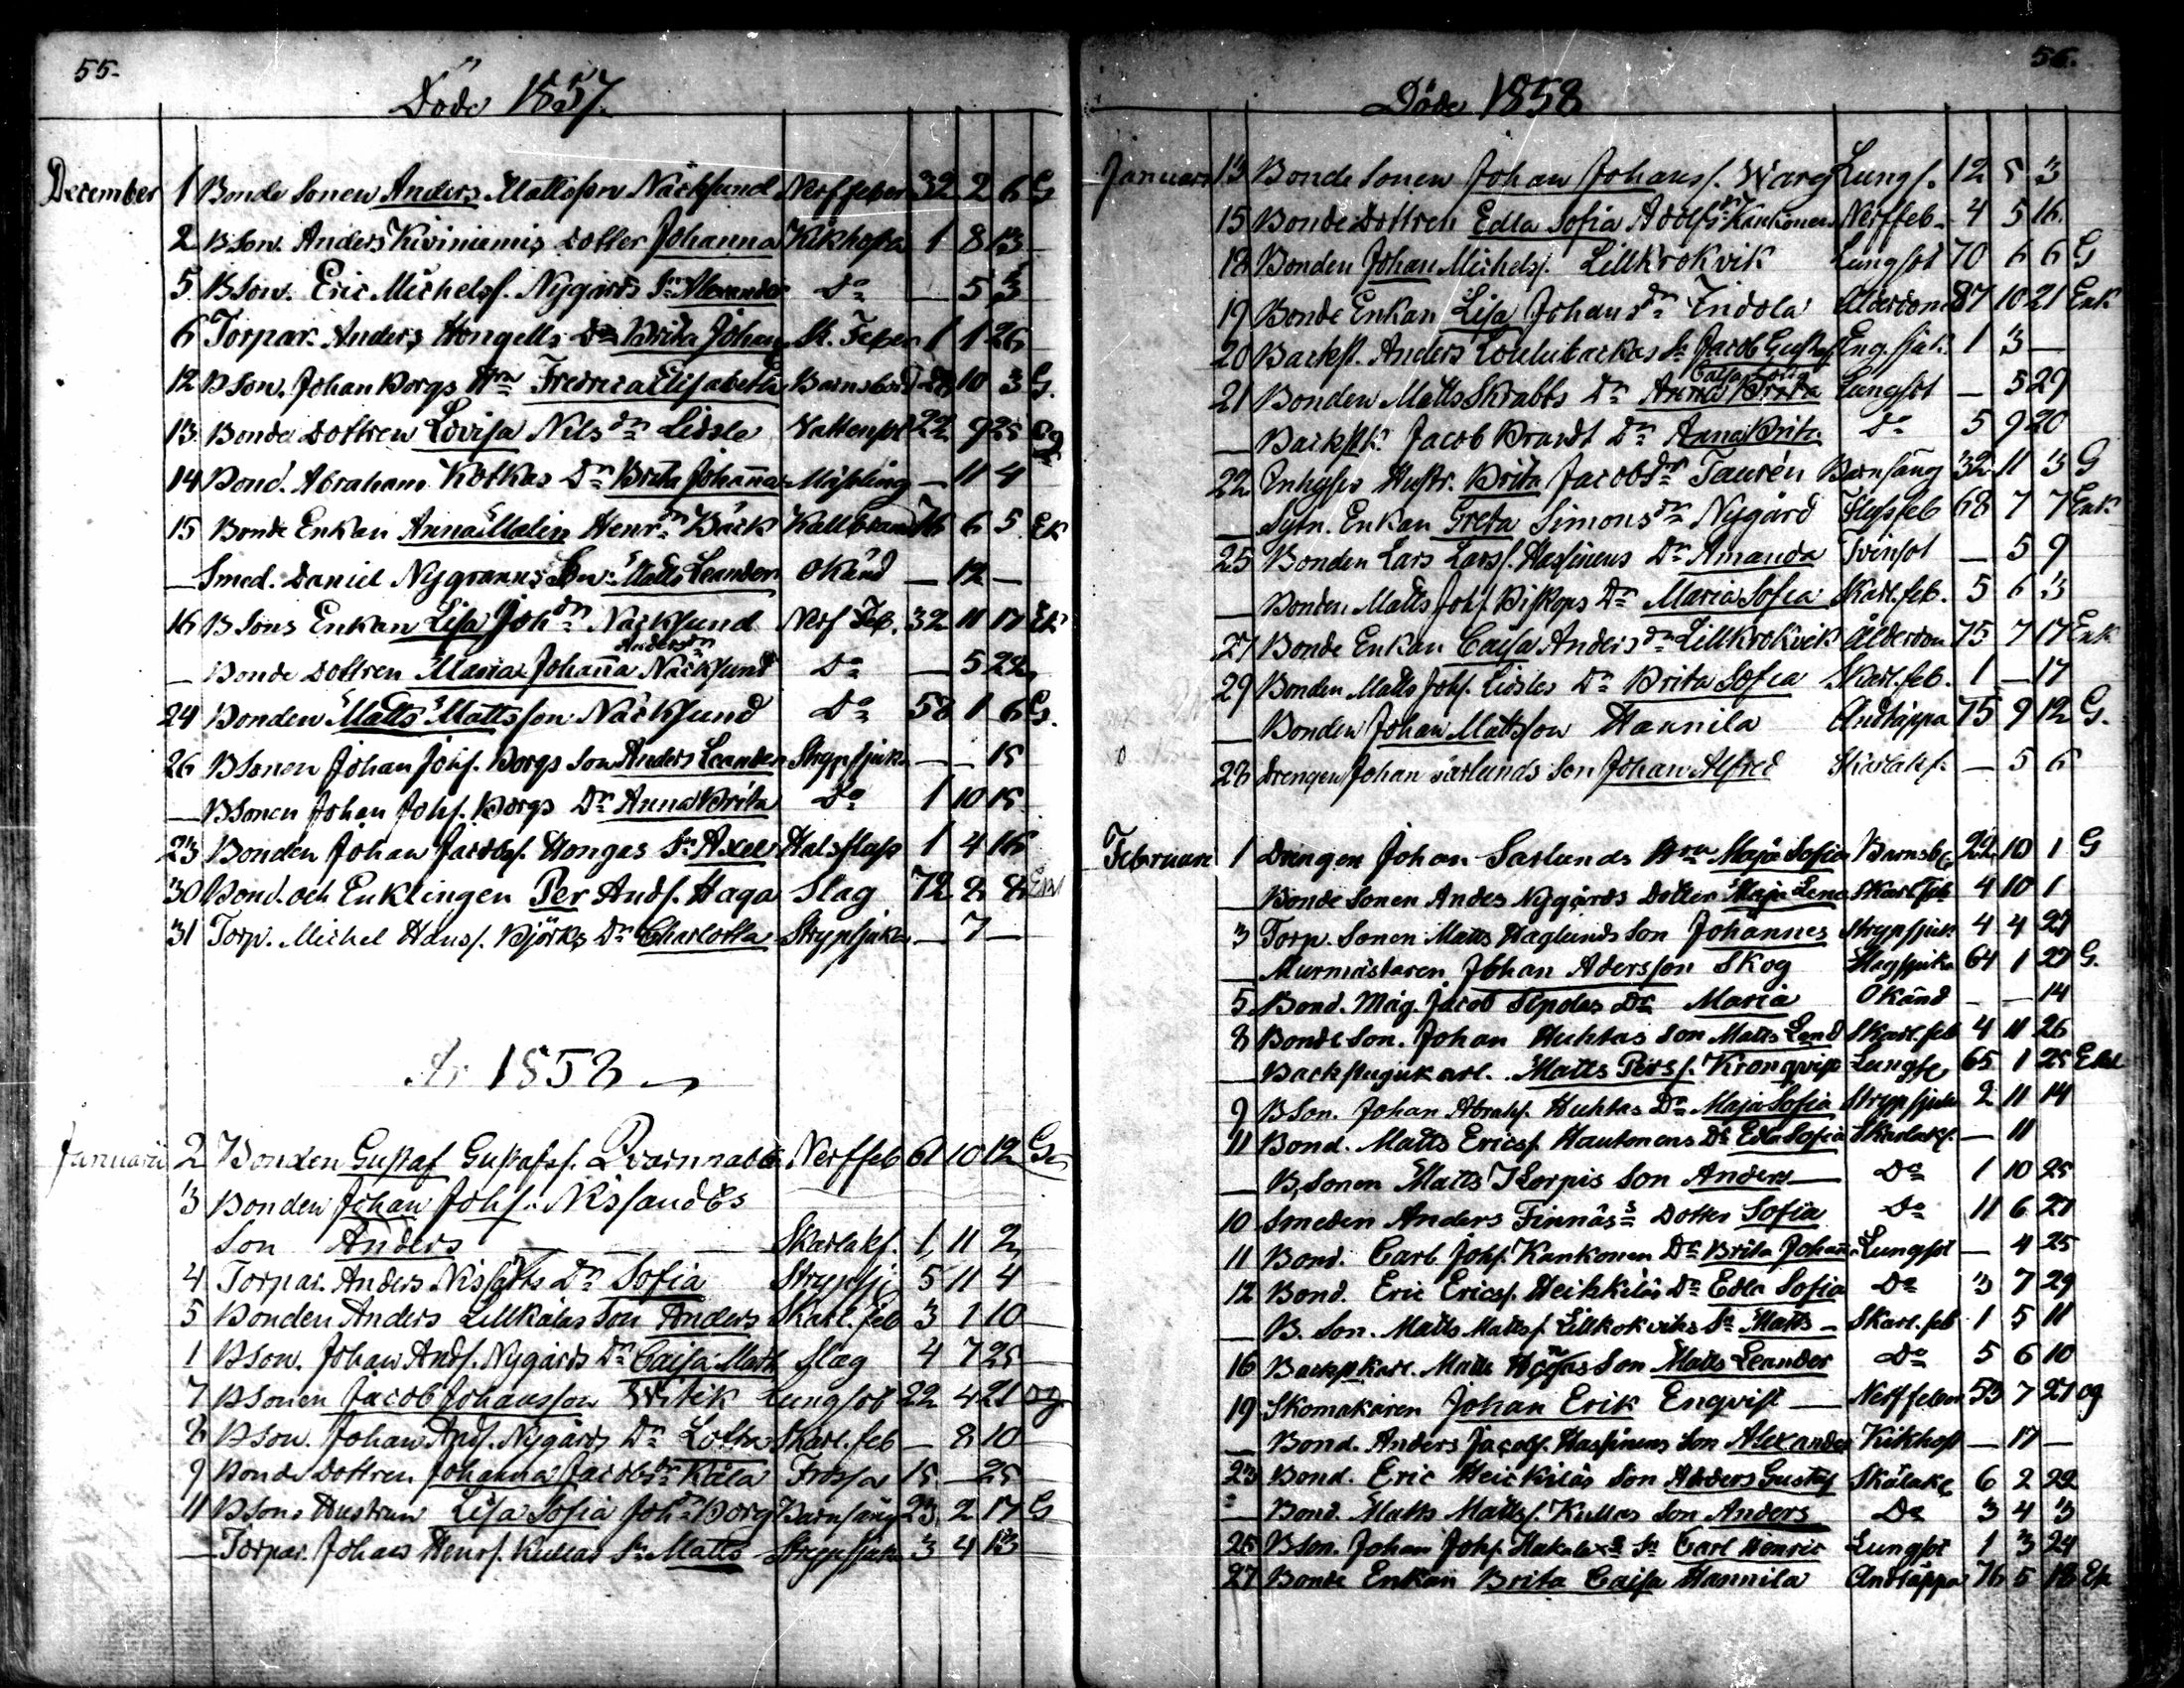 55.
Döde 1857.
December 1 Bonde Sonen Anders Mattsson Näcksund Nerffeber 32 2 6 G
2 BSon. Anders Kiviniemis dotter Johanna Kikhosta 1 8 13
5. BSon. Eric Michelsf. Nygårds Sn Alexander Do — 5 3
6 Torpar. Anders Hongells Dr Brita Johan Sk. Feber 1 1 26
12 BSon. Johan Borgs Hru Fredrica Elisabetha Barnsbörd 28 10 3 G.
13. Bonde Dottren Lovisa Nilsdr Lidsle Vattensot 22 9 25 Og
14 Bond. Abraham Kotkas Dr Brita Johanna Mässling — 11 4
15 Bonde Enkan Anna Malin Henrdr Bäck Kallbrand 76 6 5 Ek
— Smed. Daniel Nygranns Son Matts Leander Okänd — 12 —
16 BSons Enkan Lisa Johdr Näcksund Nerf Feb. 32 11 17 Ek
Andersdr
— Bonde Dottren Maria Johanna Näcksund Do — 5 22
24 Bonden Matts Mattsson Näcksund Do 58 1 6 G.
26 BSonen Johan Johs. Borgs Son Anders Leander Strypsjuka — — 15
— BSonen Johan Johs. Borgs Dr Anna Brita Do 1 10 15
23 Bonden Johan Jacobs. Hongas Sn Axel Halsflus 1 4 16
30 Bond. och Enklingen Per Ands. Haga Slag 72 2 8 Enk
31 Torp. Michel Hanss. Björks Dr Charlotta Strypsjuka — 7 —
År 1858
Januarii 2 Bonden Gustaf Gustafss. Qvarnnabba Nerffeb 61 10 12 G
3 Bonden Johan Johs. Nissandes
Son Anders Skarlakf. 1 11 2
4 Torpar. Anders Dr Sofia Strypsj. 5 11 4
5 Bonden Anders Lillkålas Son Anders Skarl. feb 3 1 10
1 BSon. Johan Ands. Nygårds Dr Caisa Math Slag 4 7 25
7 BSonen Jacob Johansson Witick Lungsot 22 4 21 Og
8 BSon. Johan Ands. Nygårds Dr Lotta Skarl. feb — 8 10
9 Bonde Dottren Johanna Jacobsdr Kåla Frossa 15 — 25
11 BSons Hustrun Lisa Sofia Johdr Borg Barnsäng 23 2 17 G
— Torpar. Johans Henrs. Kullas Sn Matts Strypsjuka 3 4 13
56.
Döde 1858
Januari 13 Bonde Sonen Johan Johanss. Warg Lungs. 12 5 3
15 Bonde Dottren Edla Sofia Adolfsdr Kankonen Nerffeb. 4 5 16.
18 Bonden Johan Michels. Lillkrokvik Lungsot 70 6 6 G
19 Bonde Enkan Lisa Johansdr Indola Ålderdom 87 10 21 Enk
20 Backst. Anders Louhibackas Sn Jacob Gustaf Eng. sjuk. 1 3 —
Caisa Lovisa
21 Bonden Matts Skrabbs Dr Anna Brita Lungsot — 5 29
— Backstk. Jacob Brandt Dr Anna Brita Do 5 9 20
22 Inhyses Hustr. Brita Jacobsdr Taurén Barnsäng 32 11 3 G
— Sytn. Enkan Greta Simonsdr Nygård Flussfeb 68 7 7 Enk
25 Bonden Lars Larss. Hassinens Dr Amanda Tvinsot — 5 9
— Bonden Matts Johs. Biskops Dr Maria Sofia Skarl. feb. 5 6 3
27 Bonde Enkan Caisa Andersdr Lillkrokvik Ålderdom 75 7 17 Enk
29 Bonden Matts Johs. Lidsles Dr Brita Sofia Skarl. feb. 1 — 17
— Bonden Johan Mattsson Hannila Andtäppa 75 9 12 G.
28 Drengen Johan Sarlunds Son Johan Alfred Skarlakf. — 5 6
Februari 1 Drengen Johan Sarlunds Hru Maja Sofia Barnsb. 22 10 1 G
— Bonde Sonen Andes Nygårds Dotter Maja Lena Skarl. feb 4 10 1
3 Torp. Sonen Matts Haglunds Son Johannes Strypsjuk 4 4 27
— Murmästaren Johan Adersson Skog Slagsjuka 64 1 27 G.
5 Bond. Måg. Jacob Sipolas Dr Maria Okänd — — 14
8 Bonde Son. Johan Huhtas Son Matts Leand Skarl. feb 4 11 26
— Backstugukarl. Matts Perss. Kronqvist Lungs. 65 1 25 Enkl
9 BSon. Johan Abrahs. Huhtas Dr Maja Sofia Strypsjuka 2 11 14
11 Bond. Matts Ericss. Hautonens Dr Edla Sofia Skarlakf. — 11
— B,Sonen Matts Korpis Son Anders Do 1 10 25
10 Smeden Anders Finnäss Dotter Sofia Do 11 6 27
11 Bond. Carl Johs. Kankonen Dr Brita Johanna Lungsot — 4 25
12 Bond. Eric Ericss. Heikkilas Dr Edla Sofia Do 3 7 29
— B. Son. Matts Matts. Lillkokviks Sn Matts Skarl. feb 1 5 11
16 Backstkarl. Matts Son Matts Leander Do 5 6 10
19 Skomakaren Johan Erik Enqvist Nerffeber 53 7 27 og
— Bond. Anders Jacobs. Hassinens Son Alexander Kikhost — 17 —
23 Bond. Eric Heickiläs Son Anders Gustaf 6 2 22
— Bond. Matts Matts. Kullas Son Anders Do 3 4 3
25 BSon. Johan Johs. Sn Carl Henric Lungsot 1 3 24
27 Bonde Enkan Brita Caisa Hannila Andtäppa 76 5 18 Ek